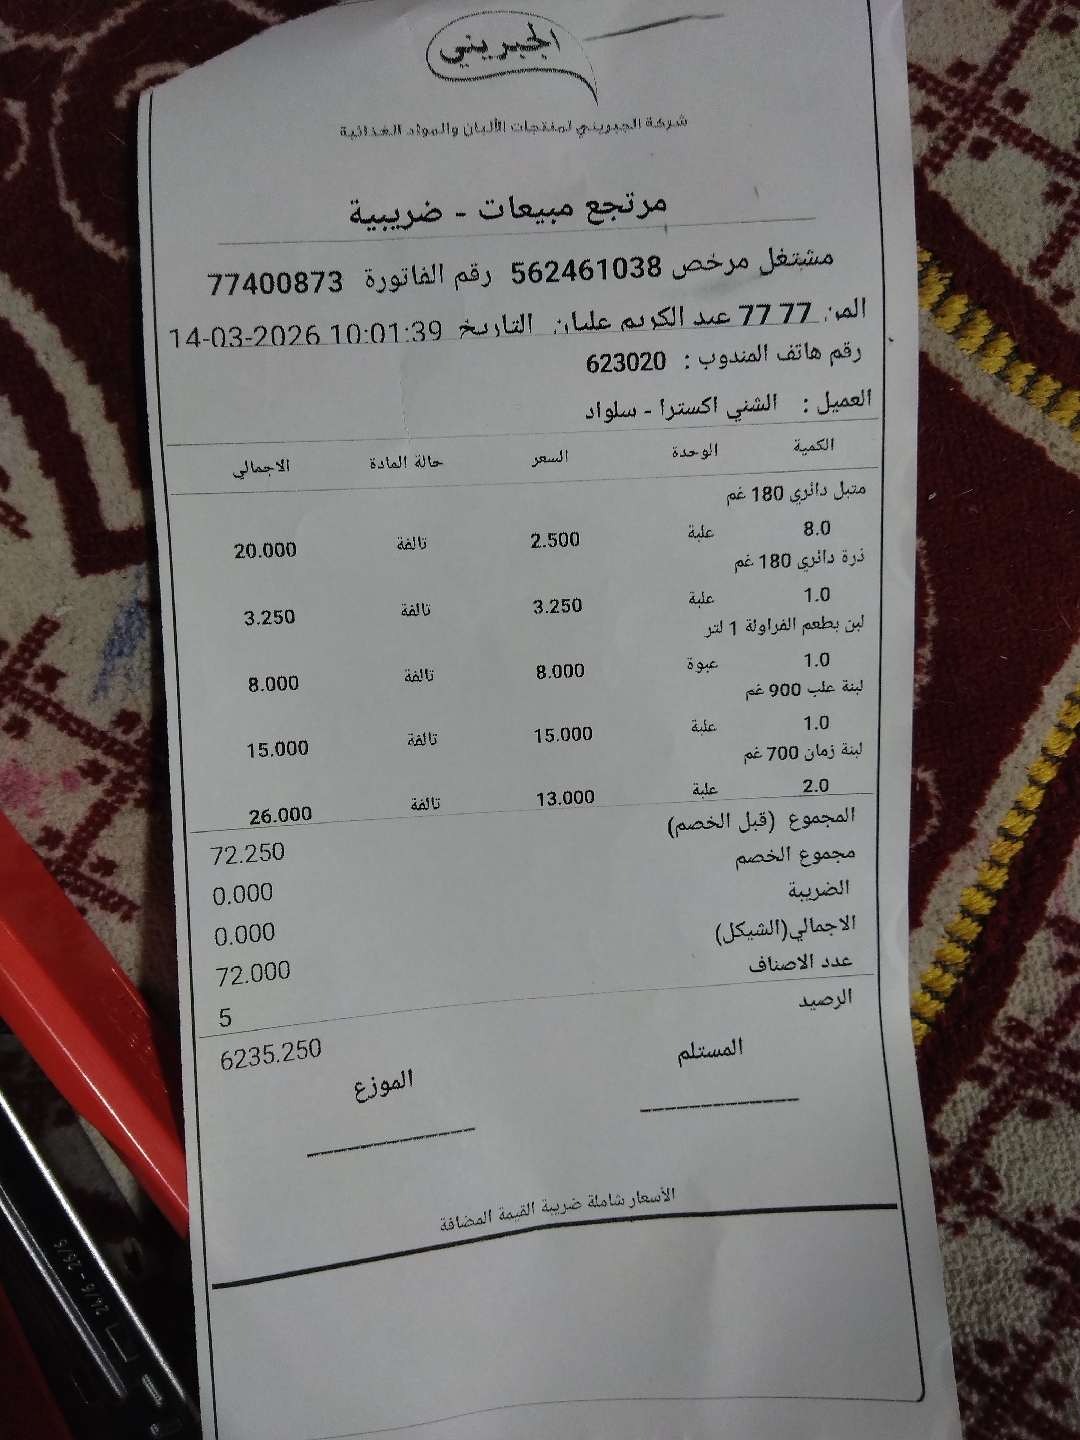 الجبريني
شركة الجبريني لمنتجات الألبان والمواد الغذائية
مرتجع مبيعات - ضريبية
مشتغل مرخص 562461038 رقم الفاتورة 77400873
77 77 عبد الكريم عليان التاريخ 14-03-2026 10:01:39
رقم هاتف المندوب : 623020
العميل : الشني اكسترا - سلواد
الكمية الوحدة السعر حالة المادة الاجمالي
متبل دائري 180 غم
8.0 علبة 2.500 تالفة 20.000
ذرة دائري 180 غم
1.0 علبة 3.250 تالفة 3.250
لبن بطعم الفراولة 1 لتر
1.0 عبوة 8.000 تالفة 8.000
لبنة علب 900 غم
1.0 علبة 15.000 تالفة 15.000
لبنة زمان 700 غم
2.0 علبة 13.000 تالفة 26.000
المجموع (قبل الخصم) 72.250
مجموع الخصم 0.000
الضريبة 0.000
الاجمالي(الشيكل) 72.000
عدد الاصناف 5
الرصيد 6235.250
المستلم الموزع
الأسعار شاملة ضريبة القيمة المضافة
24/6 - 26/6